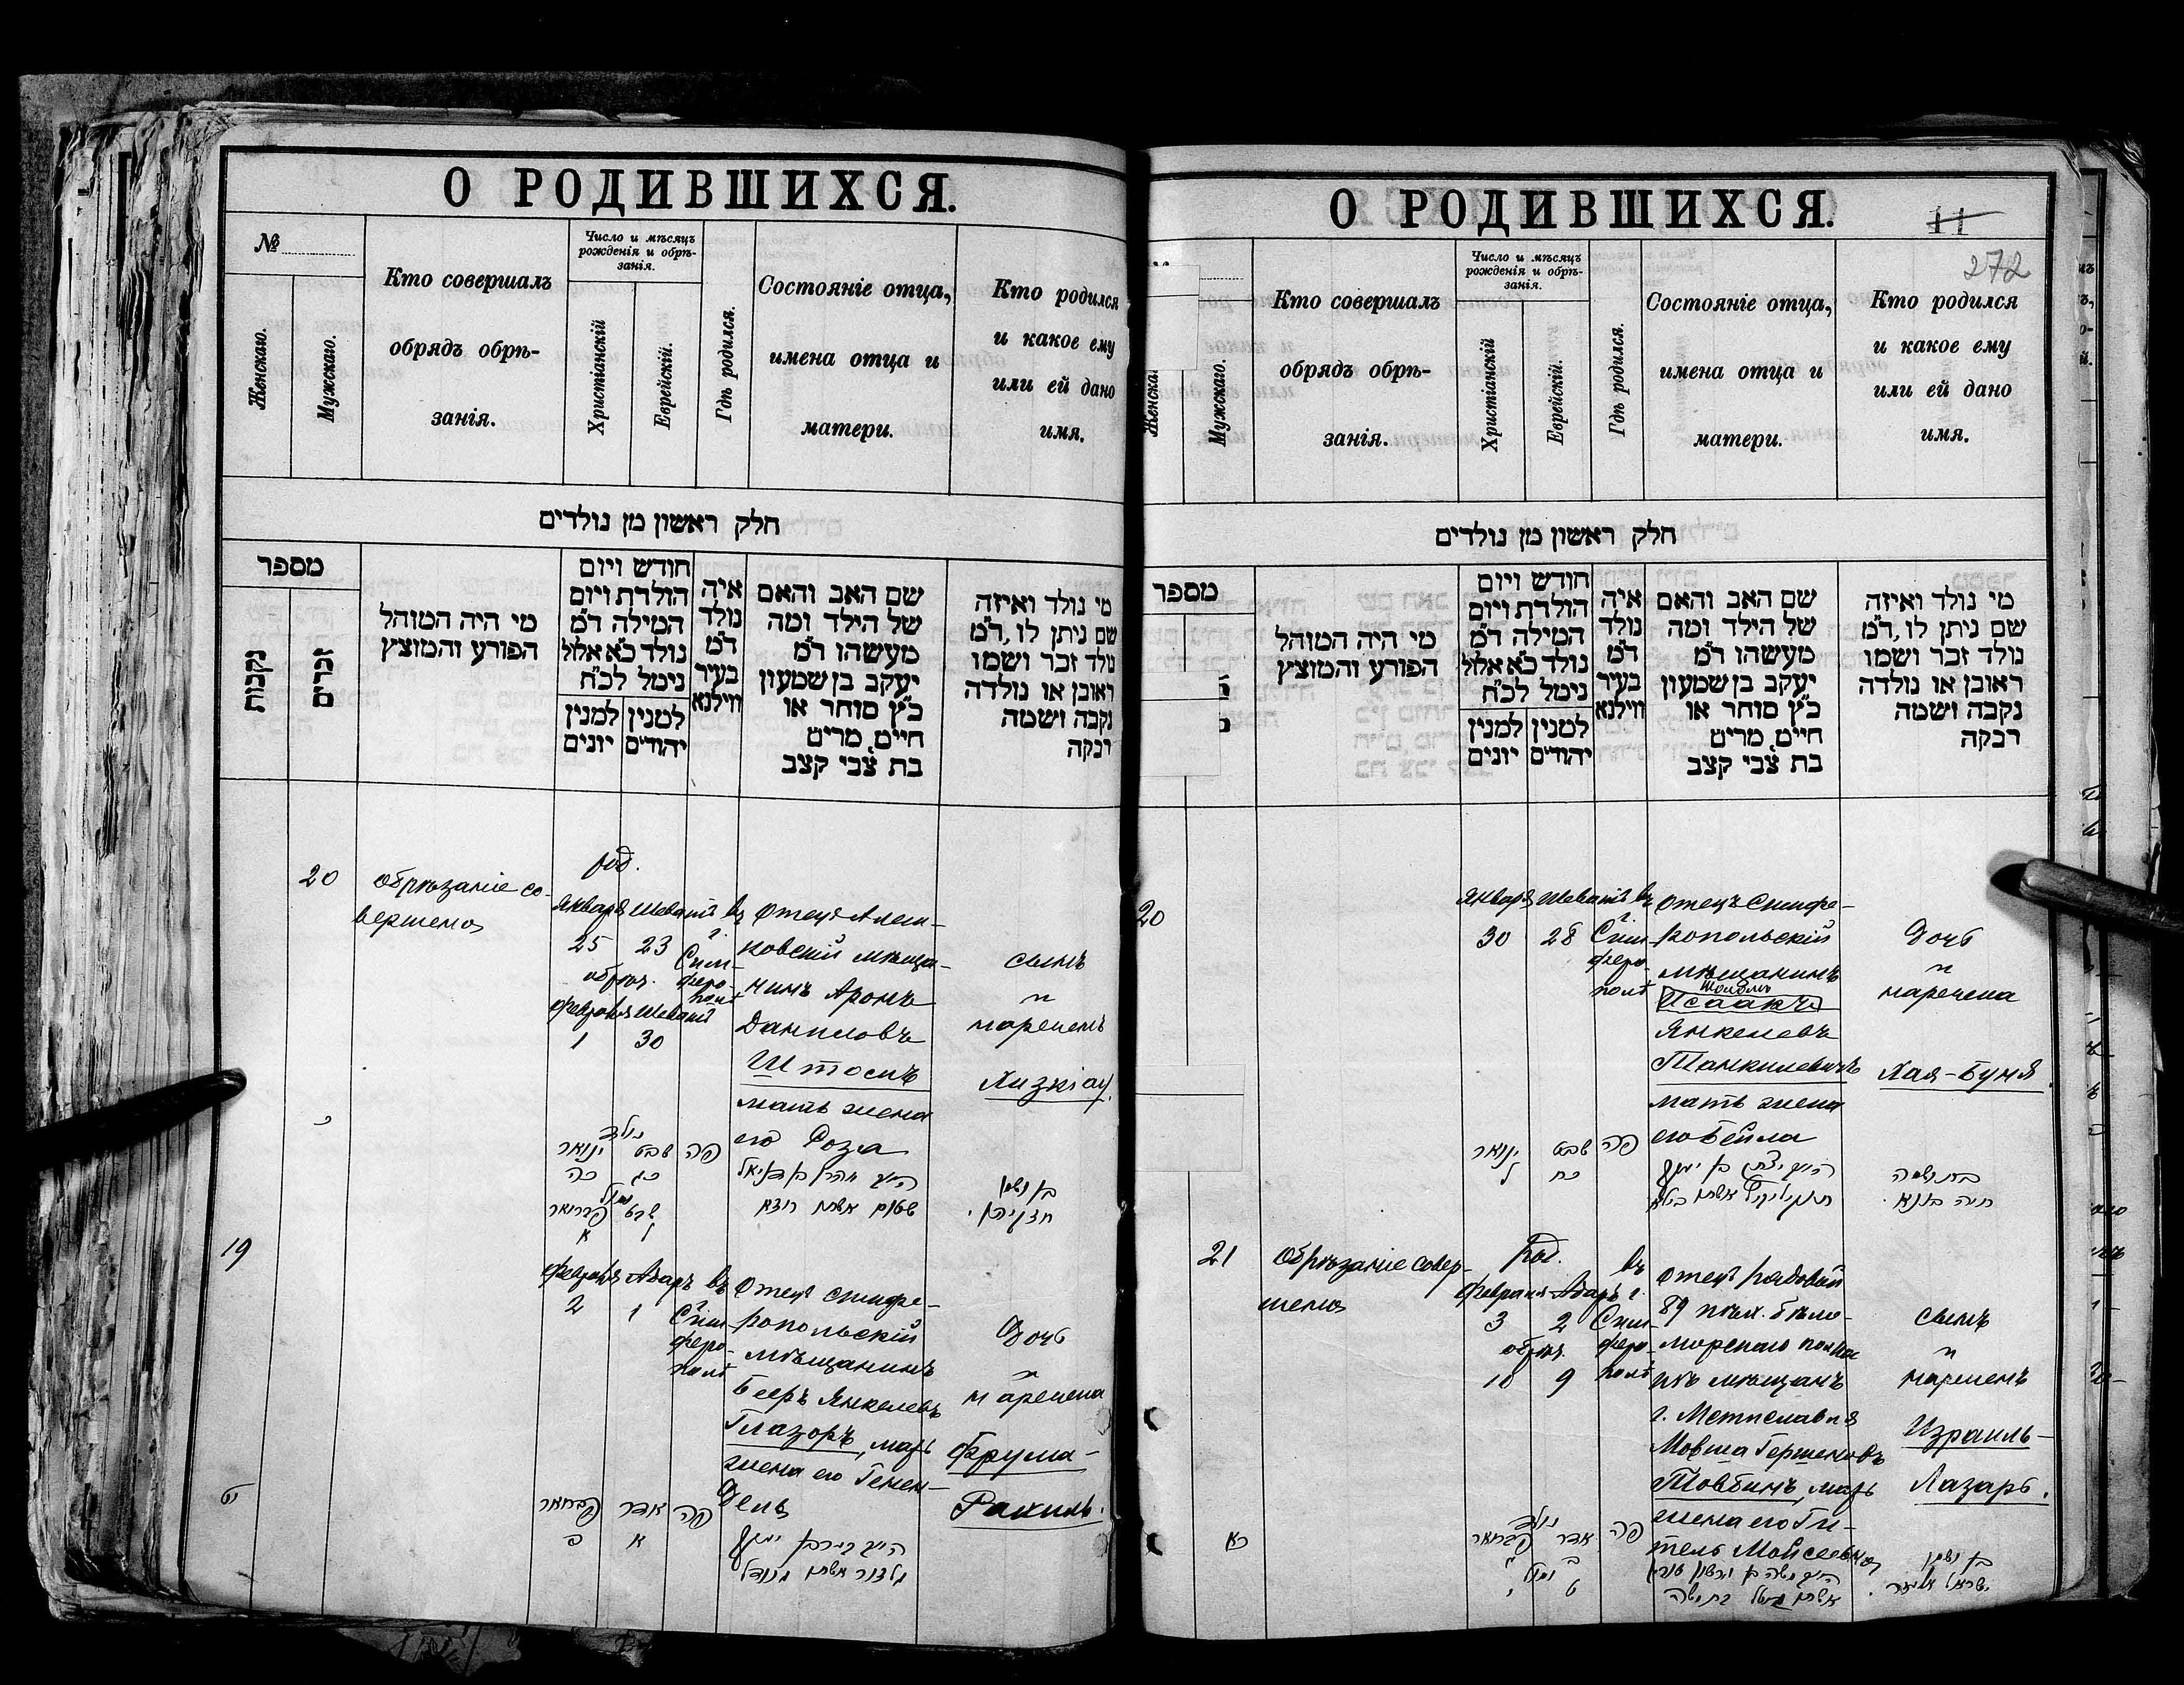 О РОДИВШИХСЯ.
№
Женскаго.
Мужскаго.
Кто совершалъ
обрядъ обрѣ-
занія.
Число и мѣсяцъ
рожденія и обрѣ-
занія.
Христіанскій
Еврейскій.
Гдѣ родился.
Состояніе отца,
имена отца и
матери.
Кто родился
и какое ему
или ей дано
имя.
חלק ראשון מן נולדים
מספר
נקבות
זכרים
מי היה המוהל
הפורע והמוצץ
חודש ויום
הולדת ויום
המילה ד״מ
נולד כ״א אלול
נימל לכ״ח
למנין
יהודים
למנין
יונים
איה
נולד
ד״מ
בעיר
ווילנא
שם האב והאם
של הילד ומה
מעשהו ד״מ
יעקב בן שמעון
כ״ץ סוחר או
חיים, מרים
בת צבי קצב
מי נולד ואיזה
שם ניתן לו, ד״מ
נולד זכר ושמו
ראובן או נולדה
נקבה ושמה
רבקה
20
обрѣзаніе со-
вершено
род.
Января Шеватъ
25 23
обрѣз.
февраля Шеватъ
1 30
въ
г.
Сим-
феро-
полѣ
Отецъ Алеш-
ковскій мѣща-
нинъ Аронъ
Даниловъ
Штокъ
мать жена
его Роза
сынъ
и
нареченъ
Хизкіау.
נולד
ינואר שבט פה
כה כג
נימול
פברואר שבט
א ל
בן ושמו
חזקיהו.
19
февраля Адаръ въ
2 1
г.
Сим-
феро-
полѣ
Отецъ Симфе-
ропольскій
мѣщанинъ
Беръ Янкелевъ
Глазоръ, мать
жена его Генен-
дель
Дочь
и
наречена
Фрума-
Рахиль.
פברואר אדר פה
ב א
О РОДИВШИХСЯ.
11
272
Женскаго.
Мужскаго.
Кто совершалъ
обрядъ обрѣ-
занія.
Число и мѣсяцъ
рожденія и обрѣ-
занія.
Христіанскій
Еврейскій.
Гдѣ родился.
Состояніе отца,
имена отца и
матери.
Кто родился
и какое ему
или ей дано
имя.
חלק ראשון מן נולדים
מספר
מי היה המוהל
הפורע והמוצץ
חודש ויום
הולדת ויום
המילה ד״מ
נולד כ״א אלול
נימל לכ״ח
למנין
יהודים
למנין
יונים
איה
נולד
ד״מ
בעיר
ווילנא
שם האב והאם
של הילד ומה
מעשהו ד״מ
יעקב בן שמעון
כ״ץ סוחר או
חיים, מרים
בת צבי קצב
מי נולד ואיזה
שם ניתן לו, ד״מ
נולד זכר ושמו
ראובן או נולדה
נקבה ושמה
רבקה
20
Января Шеватъ въ
30 28
г.
Сим-
феро-
полѣ
Отецъ Симфе-
ропольскій
мѣщанинъ
Исаакъ
Янкелевъ
Танкилевичъ
мать жена
его Бейла
Дочь
и
наречена
Хая-Буня.
ינואר שבט פה
ל כח
בת ושמה
חיה בונא.
21
Обрѣзаніе совер-
шено
Род.
Февраля Адаръ
3 2
обрѣз.
10 9
въ
г.
Сим-
феро-
полѣ
Отецъ рядовой
89 пѣх. Бѣло-
морскаго полка
изъ мѣщанъ
г. Мстиславля
Мовша Гершоновъ
Товбинъ, мать
жена его Ги-
тель Мойсеевна
сынъ
и
нареченъ
Израиль-
Лазарь.
כא
נולד
פברואר אדר פה
ג ב
נימול
י ט
בן ושמו
ישראל אליעזר.